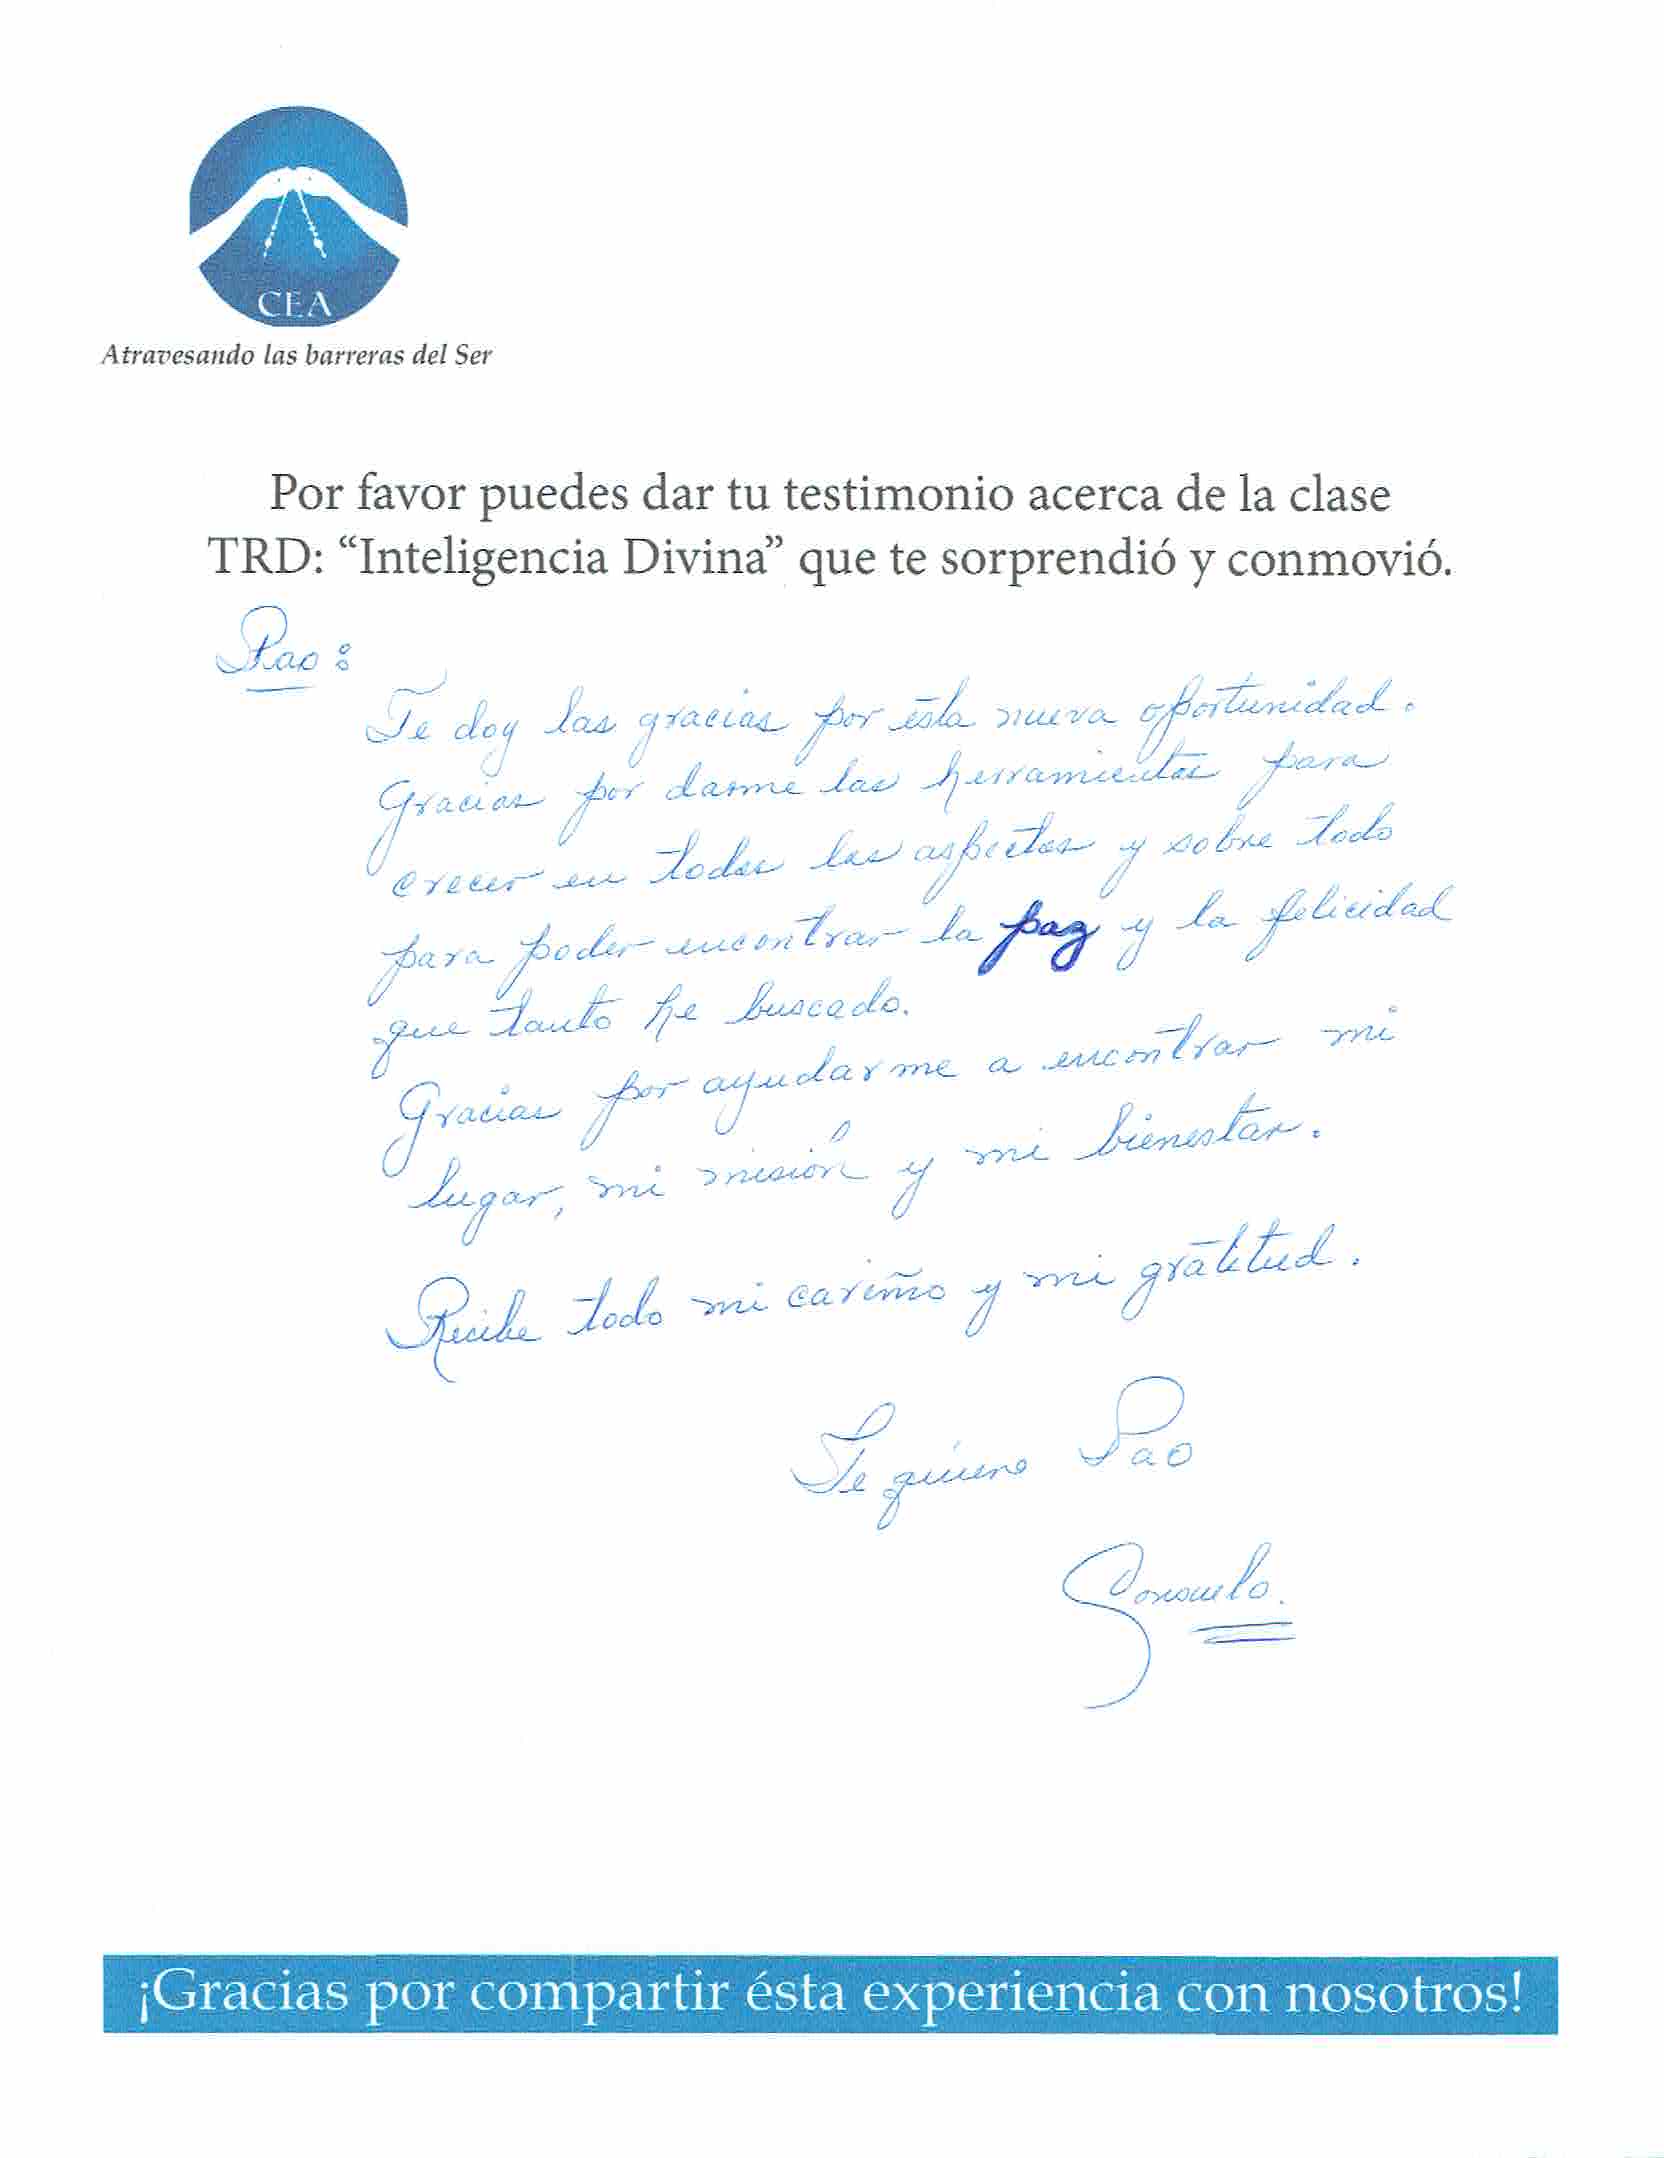 CEA
Atravesando las barreras del Ser
Por favor puedes dar tu testimonio acerca de la clase
TRD: “Inteligencia Divina” que te sorprendió y conmovió.
Pao:
Te doy las gracias por ésta nueva oportunidad.
Gracias por darme las herramientas para
crecer en todos los aspectos y sobre todo
para poder encontrar la paz y la felicidad
que tanto he buscado.
Gracias por ayudarme a encontrar mi
lugar, mi misión y mi bienestar.
Recibe todo mi cariño y mi gratitud.
Te quiero Pao
Consuelo.
¡Gracias por compartir ésta experiencia con nosotros!